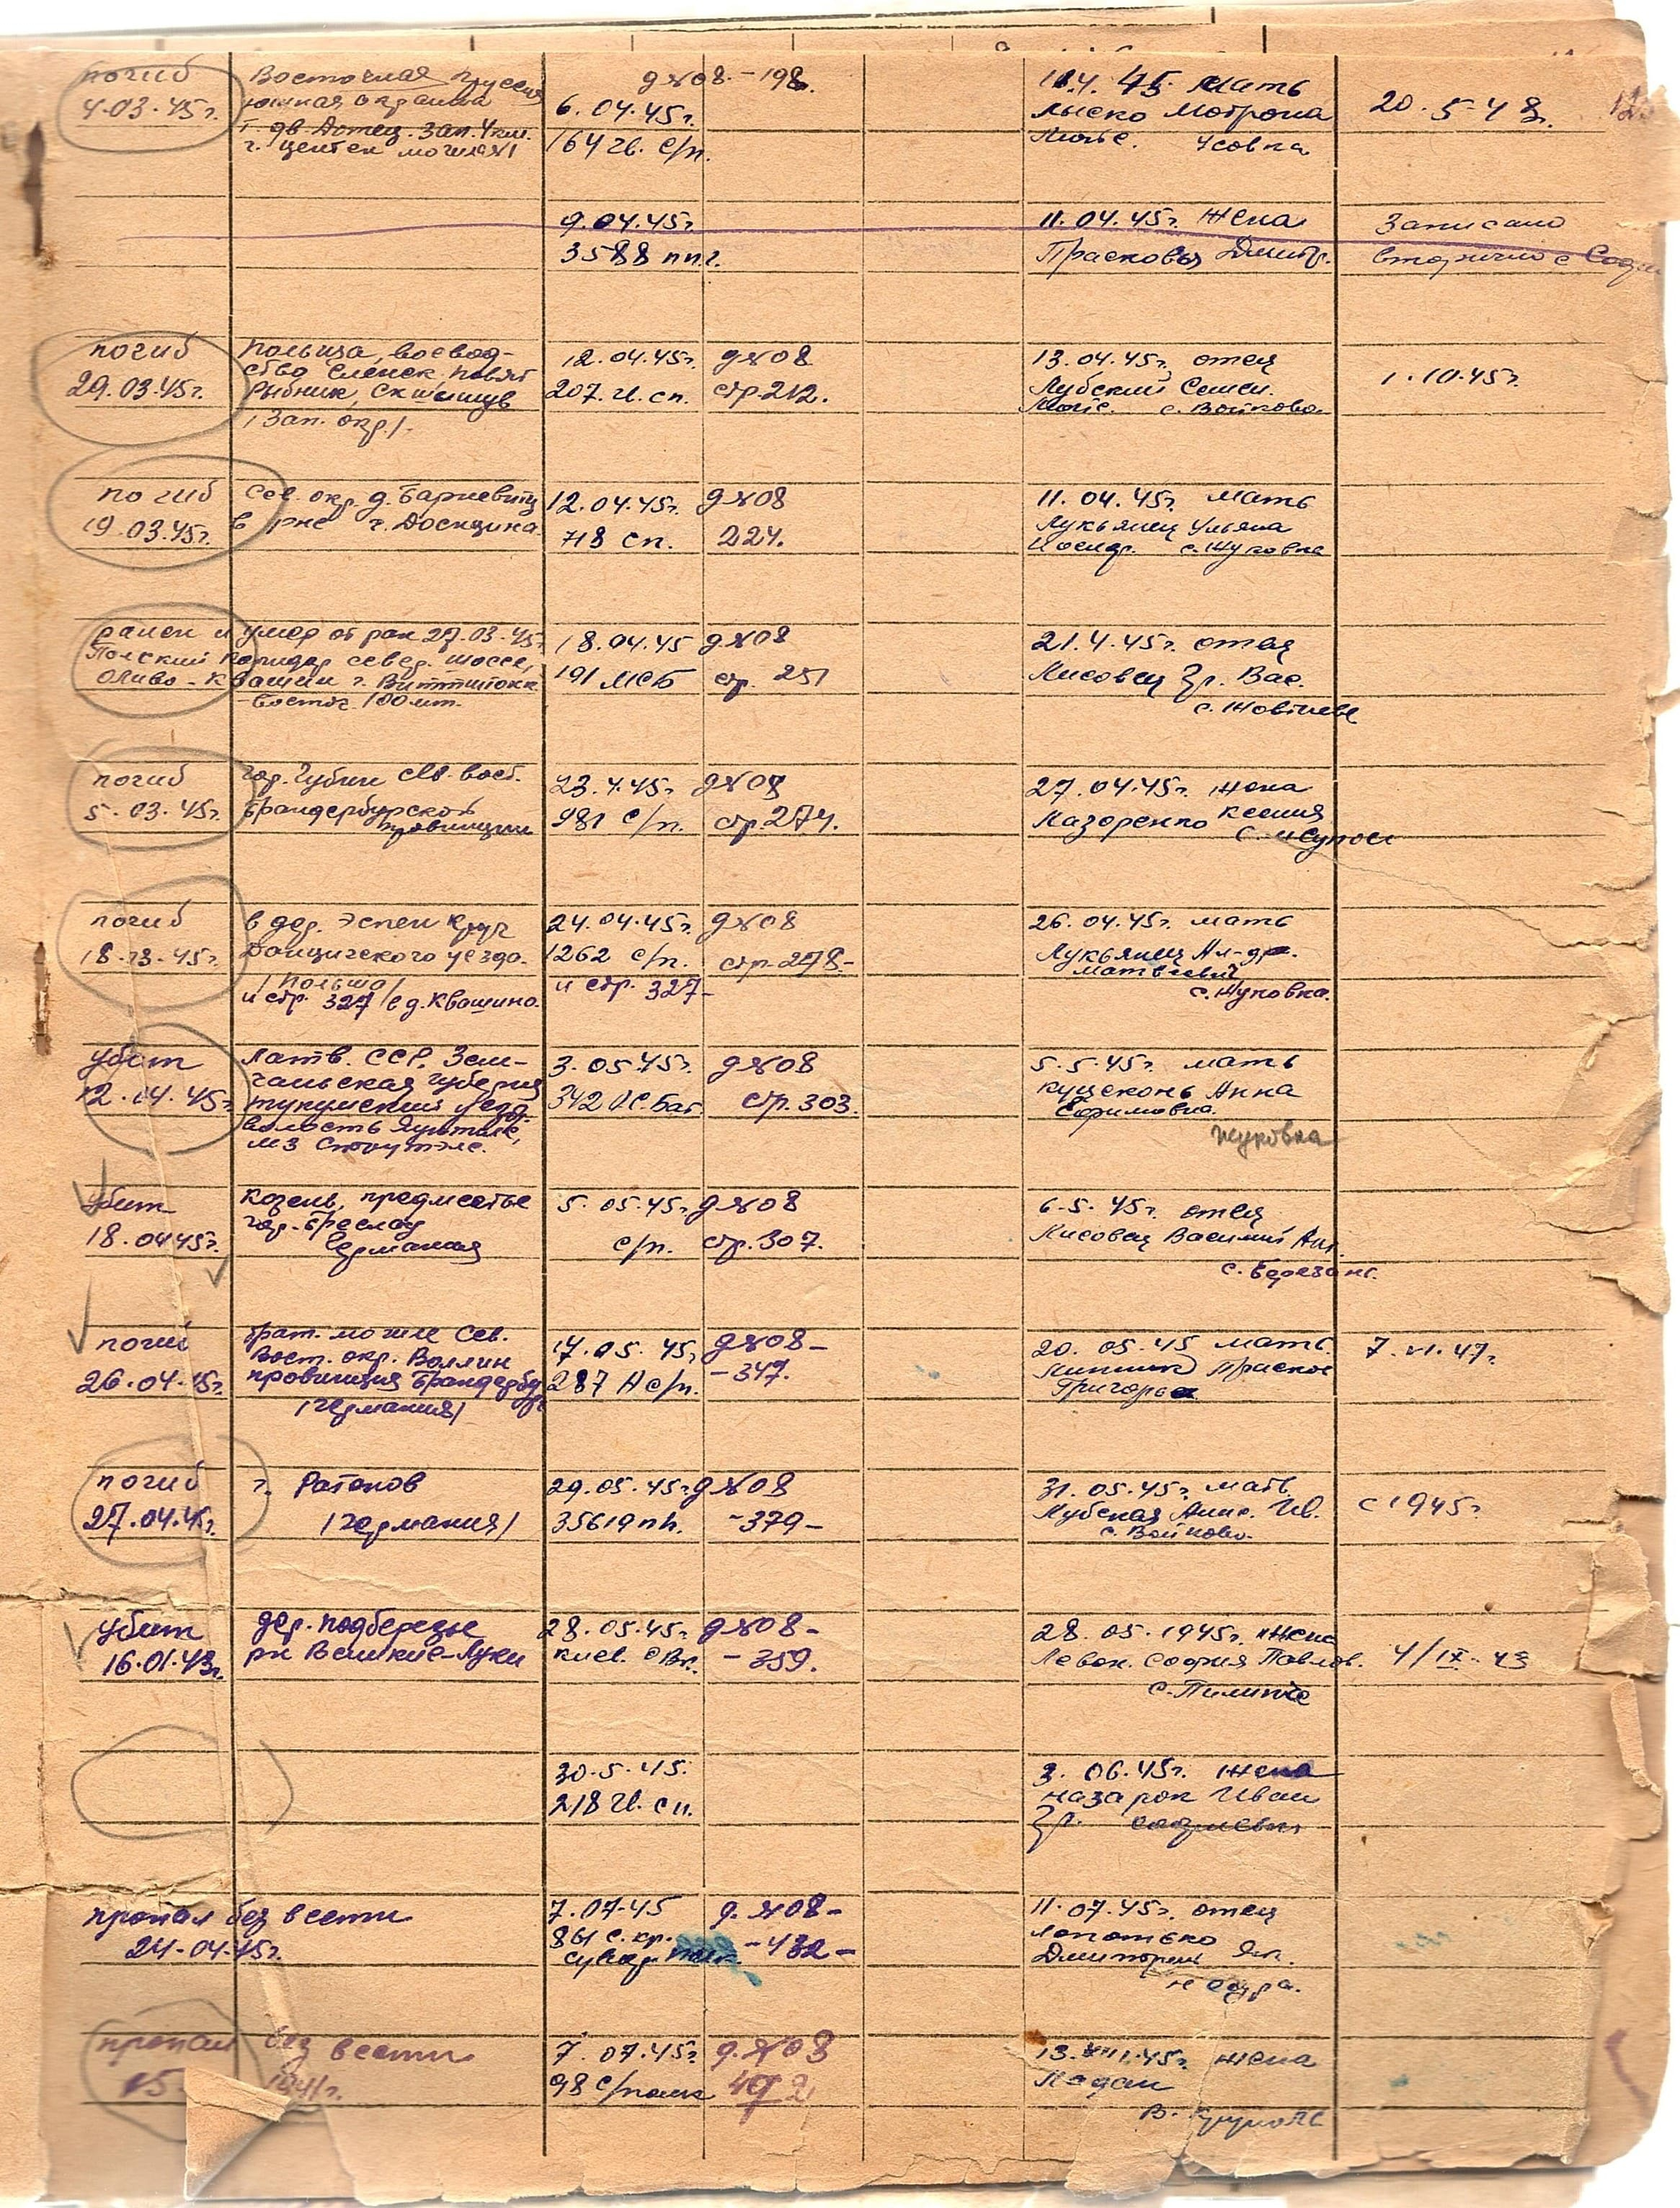 погиб
4.03.45г.
Восточная Пруссия
южная окраина
г. дв. Домец. зап. 4 км.
6.04.45г.
164 гв. с/п.
д №08.-198.
11.4.45 мать
Лыско Мотрона
20.5.48г.
9.04.45г.
3588 ппг.
11.04.45г. жена
Прасковья Дмитр.
Записано
вторично с
погиб
29.03.45г.
Польша, воевод-
ство Сленск. повят
Рыбник,
/Зап. окр./.
12.04.45г.
207. гв. сп.
д №08
стр. 212.
13.04.45г. отец
Лубский Семен.
с. Войково.
1.10.45г.
погиб
19.03.45г.
Сев. окр. д. Барневитц
в рне г. Доснцина.
12.04.45г.
718 сп.
д №08
224.
11.04.45г. мать
Лукьянец Ульяна
с. Жуковка
ранен и умер от ран 27.03.45г
Польский коридор север. шоссе,
Олива - Квашин г. Виттштокк
Восточ. 100 мт.
18.04.45
191 МСБ
д №08
стр. 251
21.4.45г. отец
Лисовец Гр. Вас.
с. Жовтневе
погиб
5.03.45г.
гор. Губин сев. вост.
Брандербурской
провинции
23.4.45г
981 с/п.
д №08
стр. 274.
27.04.45г. жена
Назаренко Ксения
с.
погиб
18.03.45г.
в дер. Эспен Круг
Данцигского уезда.
/Польша/
и стр. 327 /в д. Квашино.
24.04.45г.
1262 с/п.
и стр. 327-
д №08
стр-278-
26.04.45г. мать
Лукьянец Ал-др.
Матвеевич
с. Жуковка.
убит
12.04.45г.
Латв. ССР, Зем-
гальская губерния
тукумский уезд
волость
мз
3.05.45г.
342 Ос. Бат.
д №08
стр. 303.
5.5.45г. мать
Куцеконь Анна
Ефимовна.
Жуковка
убит
18.04.45г.
Козель, предместье
гор. Бреслау
Германия
5.05.45г
с/п.
д №08
стр. 307.
6.5.45г. отец
Лисовец Василий Ан.
с. Березанс.
погиб
26.04.45г.
Брат. могиле Сев.
Вост. окр. Воллин
провинция Брандербург
/Германия/
17.05.45г
287 Н с/п.
д №08-
-347.
20.05.45 мать
Григорь
7.VI.47г.
погиб
27.04.45г.
г. Ратенов
/Германия/
29.05.45г
35619 пп.
д №08
-379-
31.05.45г. мать
Лубская Анна. Ив.
с. Войково.
с 1945г.
убит
16.01.43г.
дер. Подберезье
рн Великие-Луки
28.05.45г.
Киев. СВУ.
д №08-
-359.
28.05.1945г. жена
Левон. София Павлов.
с. Пилипче
4/IX-43
30.5.45.
218 гв. сп.
3.06.45г. жена
Назарок Иван
Гр.
пропал без вести
24.04.45г.
7.07.45
861 с. кр.
д. №08-
-432-
11.07.45г. отец
Лопотько
Дмиторень Як.
Недра.
пропал без вести
15. 1941г.
7.07.45г.
98 с/полк
д. №08
492
13.VIII.45г. жена
В. Крупольс